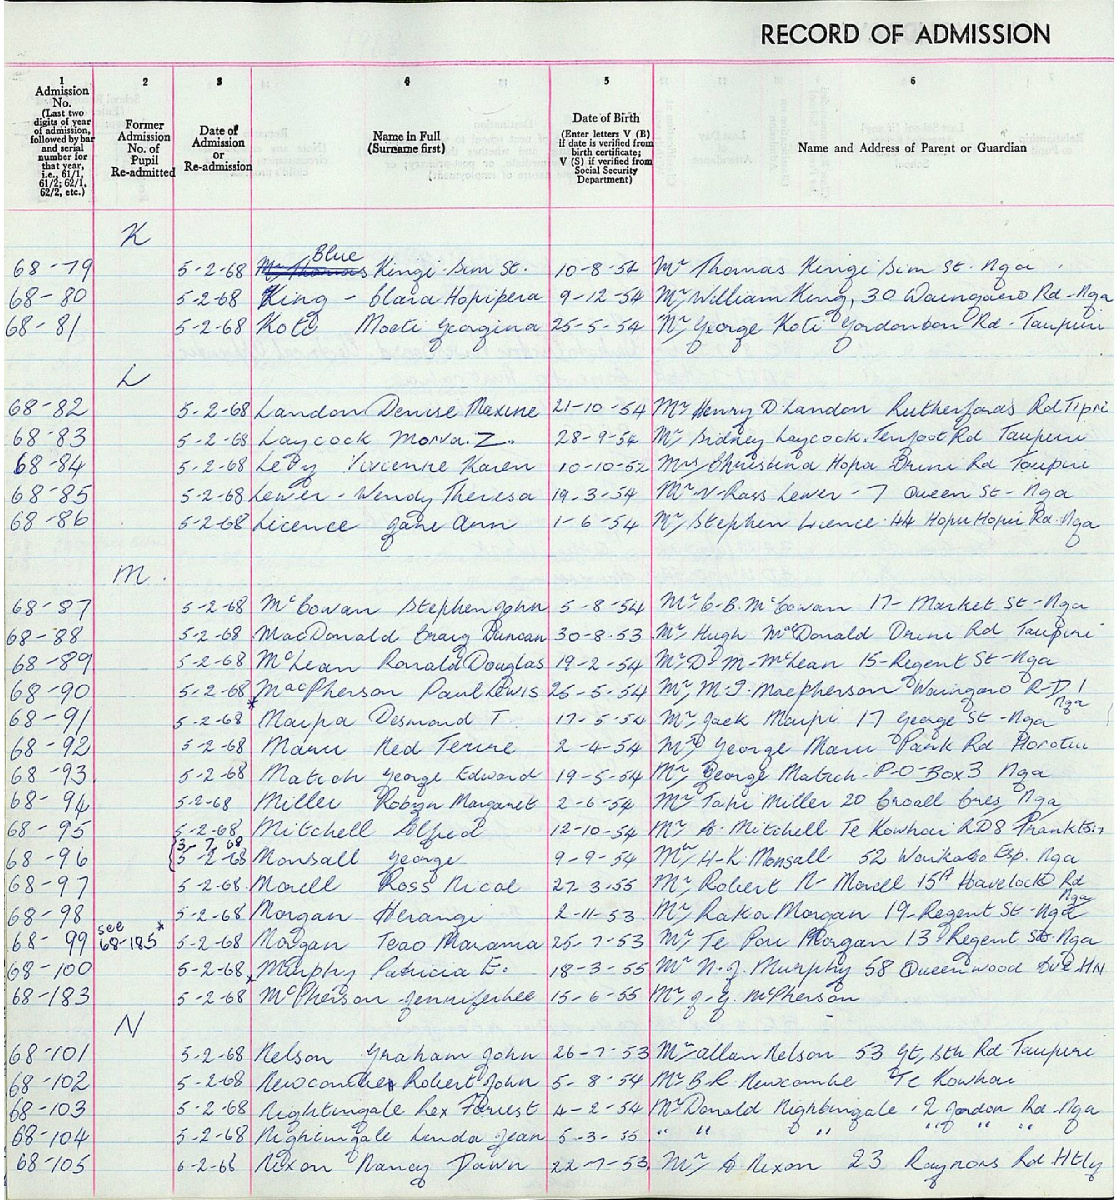 RECORD OF ADMISSION
1 2 3 4 5 6
Admission No. (Last two digits of year of admission, followed by bar and serial number for that year, i.e., 61/1, 61/2; 62/1, 62/2, etc.)
Former Admission No. of Pupil Re-admitted
Date of Admission or Re-admission
Name in Full (Surname first)
Date of Birth (Enter letters V (B) if date is verified from birth certificate; V (S) if verified from Social Security Department)
Name and Address of Parent or Guardian
K
Blue
68-79 5-2-68 Mr Thomas Kingi Sim St. 10-8-54 Mr Thomas Kingi Sim St Nga
68-80 5-2-68 King - Clara Hopipera 9-12-54 Mr William King, 30 Waingaro Rd-Nga
68-81 5-2-68 Koti Moeti Georgina 25-5-54 Mr George Koti Gordonton Rd-Taupiri
L
68-82 5-2-68 Landon Denise Maxine 21-10-54 Mr Henry D Landon Rutherfords Rd Tipri
68-83 5-2-68 Laycock Morva. Z. 28-9-54 Mr Sidney Laycock. Tenfoot Rd Taupiri
68-84 5-2-68 Vivienne Karen 10-10-52 Mrs Christina Hopa Rd Taupiri
68-85 5-2-68 Lewer - Wendy Theresa 19-3-54 Mr N-Ross Lewer - 7 Queen St-Nga
68-86 5-2-68 Licence Jane Ann 1-6-54 Mr Stephen Licence 44 HopuHopu Rd-Nga
M.
68-87 5-2-68 McCowan Stephen John 5-8-54 Mr C-B. McCowan 17-Market St-Nga
68-88 5-2-68 MacDonald Craig Duncan 30-8-53 Mr Hugh MacDonald Rd Taupiri
68-89 5-2-68 McLean Ronald Douglas 19-2-54 Mr D- M-McLean 15-Regent St-Nga
68-90 5-2-68 MacPherson Paul Lewis 26-5-54 Mr M-J. MacPherson Waingaro R-D 1 Nga
68-91 5-2-68 * Maipa Desmond T. 17-5-54 Mr Jack Maipi 17 George St-Nga
68-92 5-2-68 Manu Ned 2-4-54 Mr George Manu Park Rd Horotiu
68-93 5-2-68 Matich George Edward 19-5-54 Mr George Matich-P-O-Box 3 Nga
68-94 5-2-68 Miller Robyn Margaret 2-6-54 Mr Tapi Miller 20 Croall Cres, Nga
68-95 5-2-68 Mitchell Alfred 12-10-54 Mr A. Mitchell Te Kowhai RD8 Frankton
3-7-68
68-96 5-2-68 Monsall George 9-9-54 Mr H-K. Monsall 52 Waikato Esp. Nga
68-97 5-2-68 Morell Ross Nicol 27 3-55 Mr Robert N-Morell 15A Havelock Rd Nga
68-98 5-2-68 Morgan Herangi 2-11-53 Mr Raka Morgan 19-Regent St-Nga
68-99 see 68-185* 5-2-68 Morgan Teao Marama 25-7-53 Mr Te Pou Morgan 13 Regent St-Nga
68-100 5-2-68 x Murphy Patricia E. 18-3-55 Mr N-J. Murphy 58 Queenwood Ave HN
68-183 5-2-68 McPherson Jennifer Lee 15-6-55 Mr J-G. McPherson
N
68-101 5-2-68 Nelson Graham John 26-7-53 Mr Allan Nelson 53 Gt, Sth Rd Taupiri
68-102 5-2-68 Newcombe Robert John 5-8-54 Mr B-R Newcombe Te Kowhai
68-103 5-2-68 Nightingale Rex Forrest 4-2-54 Mr Donald Nightingale - 2 Jordon Rd-Nga
68-104 5-2-68 Nightingale Linda Jean 5-3-55 " " " " " "
68-105 6-2-68 Nixon Nancy Dawn 22-7-53 Mr A Nixon 23 Raynors Rd Htly